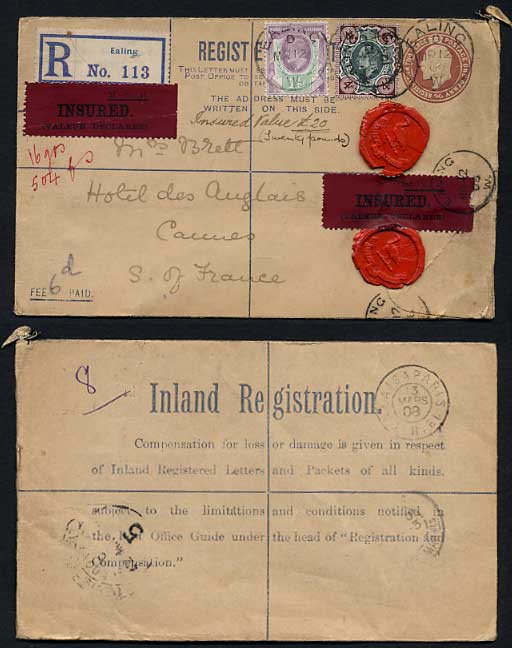 R
Ealing.
No. 113
REGIST
EALING
MR 12
EALING
MR 12
THIS LETTER MUST BE
POST OFFICE TO BE
THE ADDRESS MUST BE
WRITTEN ON THIS SIDE.
INSURED.
(VALEUR DECLAREE)
Insured Value £20
(Twenty pounds)
Mrs Brett
Hotel des Anglais
Cannes
S. of France
INSURED.
(VALEUR DECLAREE)
FEE 6d PAID.
8
Inland Registration.
Compensation for loss or damage is given in respect
of Inland Registered Letters and Packets of all kinds,
subject to the limitations and conditions notified in
the Post Office Guide under the head of "Registration and
Compensation."
CALAIS A PARIS
13
MARS
08
5